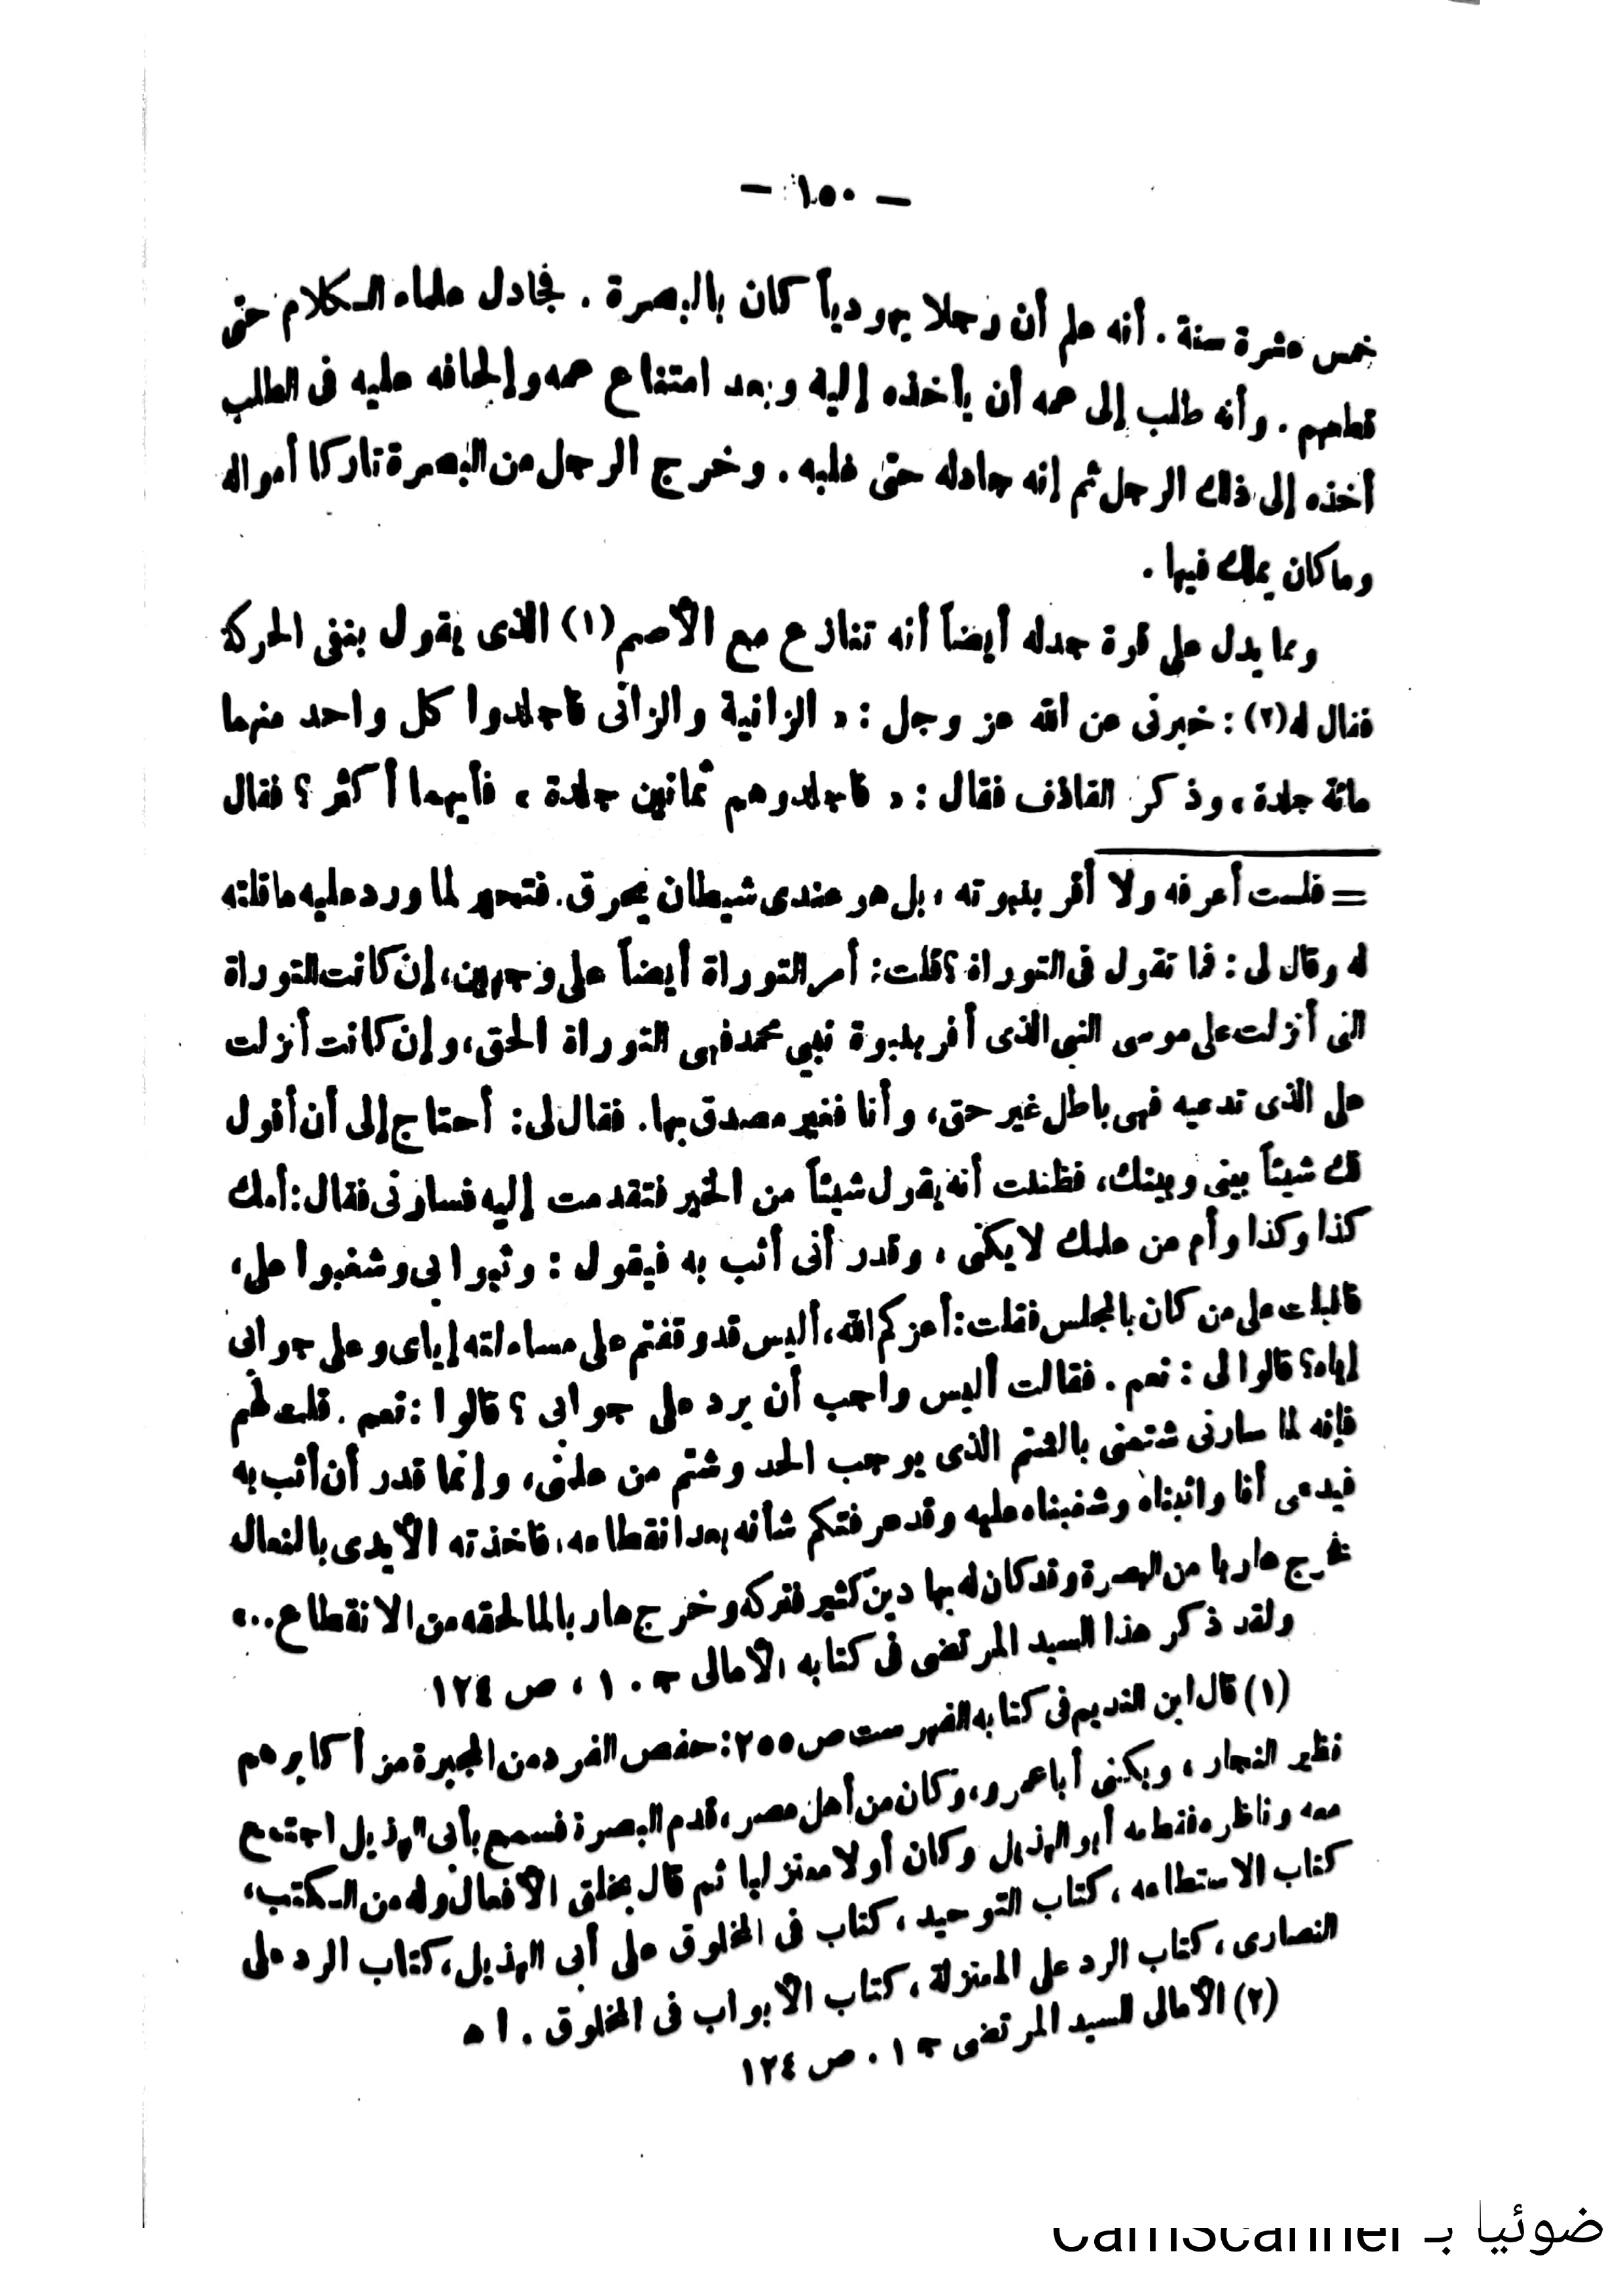 — ١٥٠ —
خمس عشرة سنة . أنه علم أن رجلا يهودياً كان بالبصرة . فجادل علماء الكلام حتى
قطعهم . وأنه طلب إلى عمه أن يأخذه إليه وبعد امتناع عمه وإلحافه عليه فى الطلب
أخذه إلى ذلك الرجل ثم إنه جادله حتى غلبه . وخرج الرجل من البصرة تاركا أمواله
وما كان يملك فيها .
ومما يدل على قوة جدله أيضاً أنه تنازع مع الأصم (١) الذى يقول بنفى الحركة
فقال له (٢) : خبرنى عن الله عز وجل : « الزانية والزانى فاجلدوا كل واحد منهما
مائة جلدة ، وذكر القاذف فقال : « فاجلدوهم ثمانين جلدة ، فأيهما أكثر ؟ فقال
= فلست أعرفه ولا أقر بنبوته ، بل هو عندى شيطان يحرق . فتحير لما ورد عليه ما قلته
له وقال لى : فما تقول فى التوراة ؟ قلت : أمر التوراة أيضاً على وجهين ، إن كانت التوراة
التى أنزلت على موسى النبى الذى أقر بنبوة نبيى محمد فهى التوراة الحق ، وإن كانت أنزلت
على الذى تدعيه فهى باطل غير حق ، وأنا فغير مصدق بها . فقال لى : أحتاج إلى أن أقول
لك شيئاً بينى وبينك ، فظننت أنه يقول شيئاً من الخير فتقدمت إليه فسارنى فقال : أمك
كذا وكذا وأم من علمك لا يكنى ، وقدر أنى أثب به فيقول : وثبوا بى وشغبوا على ،
فأقبلت على من كان بالمجلس فقلت : أعزكم الله ، أليس قد وقفتم على مساءلته إياى وعلى جوابى
إياه ؟ قالوا لى : نعم . فقالت أليس واجب أن يرد على جوابى ؟ قالوا : نعم . قلت لهم
فإنه لما سارنى شتمنى بالشتم الذى يوجب الحد وشتم من علمنى ، وإنما قدر أن أثب به
فيدعى أنا واثبناه وشغبناه عليه وقد عرفتكم شأنه بعد انقطاعه ، فأخذته الأيدى بالنعال
فخرج هاربا من البصرة وقد كان له بها دين كثير فتركه وخرج هاربا لما لحقه من الانقطاع .. »
ولقد ذكر هذا السيد المرتضى فى كتابه الأمالى ج ١ ، ص ١٢٤
(١) قال ابن النديم فى كتابه الفهرست ص ٢٥٥ : حفص الفرد من المجبرة من أكابرهم
نظير النجار ، ويكنى أبا عمرو ، وكان من أهل مصر ، قدم البصرة فسمع بأبى الهذيل اجتمع
معه وناظره فقطعه أبو الهذيل وكان أولا معتزليا ثم قال بخلق الأفعال وله من الكتب ،
كتاب الاستطاعه ، كتاب التوحيد ، كتاب فى المخلوق على أبى الهذيل ، كتاب الرد على
النصارى ، كتاب الرد على المعتزلة ، كتاب الأبواب فى المخلوق . ا ه
(٢) الأمالى للسيد المرتضى ج ١ . ص ١٢٤
ضوئيا بـ CamScanner